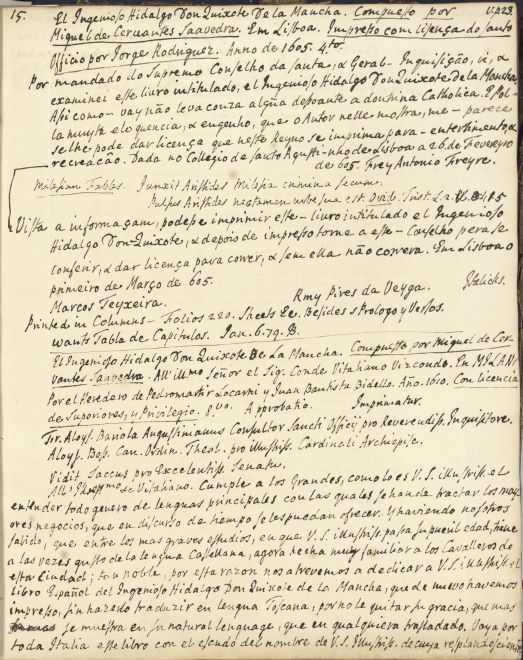 15. El Ingenioso Hidalgo Don Quixote De la Mancha. Compuesto por
Miguel de Cervantes Saavedra. Em Lisboa. Impresso com lisença do santo
Officio por Jorge Rodriguez. Anno de 1605. 4to.
Por mandado do Supremo Conselho da santa, & Geral- Inquisição, vi, &
examinei este livro intitulado, el Ingenioso Hidalgo Don Quixote de la Mancha
Assi como- vay não leva couza algũa deposante a doutrina Catholica. E pol-
la muyta eloquencia, & engenho, que o Autor nelle mostra, me- parece
se lhe pode dar licença que neste Reyno se imprima para- entertimento, &
recreacão. Dada no Collegio de santo Agusti-nho de Lisboa a 26. de Fevereyro
de 605. Frey Antonio Freyre.
Milesian Fables. Junxit Aristides Milesia crimina secum:
Pulsus Aristides nec tamen urbe sua est. Ovid. Trist. L. 2.
Vista a informaçam, podese imprimir este- livro intitulado el Ingenioso
Hidalgo Don Quixote, & depois de impresso torne a este- Conselho pera se
conferir, & dar licença para correr, & sem ella não correra. Em Lisboa o
primeiro de Março de 605.
Marcos Teyxeira. Rmy Pires da Veyga. Italicks.
Printed in Columns- Folios 220. Sheets Ee. Besides s Prologo y Versos.
wants Tabla de Capitulos. Jan. 6. 79. B.
El Ingenioso Hidalgo Don Quixote De La Mancha. Compuesto por Miguel de Cer-
vantes Saavedra. All' ill.mo Señor el Sig. Conde Vitaliano Vizconde. En MILAN
Por el Heredero de Pedromartir Locarni y Juan Bautista Bidello. Año. 1610. Con licencia
de Superiores, y Privilegio. 8.vo. Approbatio. Imprimatur.
Fr. Aloys. Bariola Augustinianus Consultor Sancti Officij pro Reverendiss. Inquisitore.
Aloys. Boss. Can. Ordin. Theol. pro illustriss. Cardinali Archiepisc.
Vidit Saccus pro Excelentiss. Senatu.
All' Vitaliano. Cumple a los Grandes, como lo es V. S. illustriss. el
entender todo genero de lenguas principales con las quales, se han de tractar los may
ores negocios, que en discurso de tiempo se les puedan ofrecer. Y haviendo nosotros
sabido, que entre los mas graves estudios, en que V. S. illustriss. passa su pueril edad, tiene
a las vezes gusto de la lengua Castellana, agora hecha muy familiar a los Cavalleros de
esta Ciudad; tan noble, por esta razon nos atrevemos a dedicar a V. S. illustriss. el
libro Español del Ingenioso Hidalgo Don Quixote de la Mancha, que de nuevo havemos
impresso, sin hazerlo traduzir en lengua Toscana, por no le quitar su gracia, que mas
se muestra en su natural lenguage, que en qualquiera trasladado. Vaya por
toda Italia este libro con el escudo del nombre de V. S. Illustriss. de cuya resplandesciente